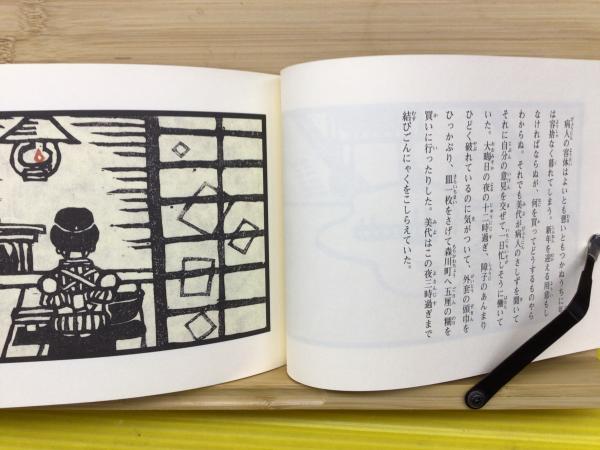 病人の容体はよいとも悪いともつかぬうちに年
は容捨なく暮れてしまう。新年を迎える用意もし
なければならぬが、何を買ってどうするものやら
わからぬ。それでも美代が病人のさしずを聞いて
それに自分の意見を交ぜて一日忙しそうに働いて
いた。大晦日の夜の十二時過ぎ、障子のあんまり
ひどく破れているのに気がついて、外套の頭巾を
ひっかぶり、皿一枚をさげて森川町へ五厘の糊を
買いに行ったりした。美代はこの夜三時過ぎまで
結びごんにゃくをこしらえていた。